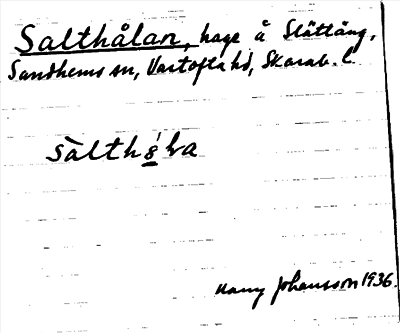 Salthålan, hage å Slättäng,
Sandhems sn, Vartofta hd, Skarab. l.
sàlth
Nanny Johansson 1936.